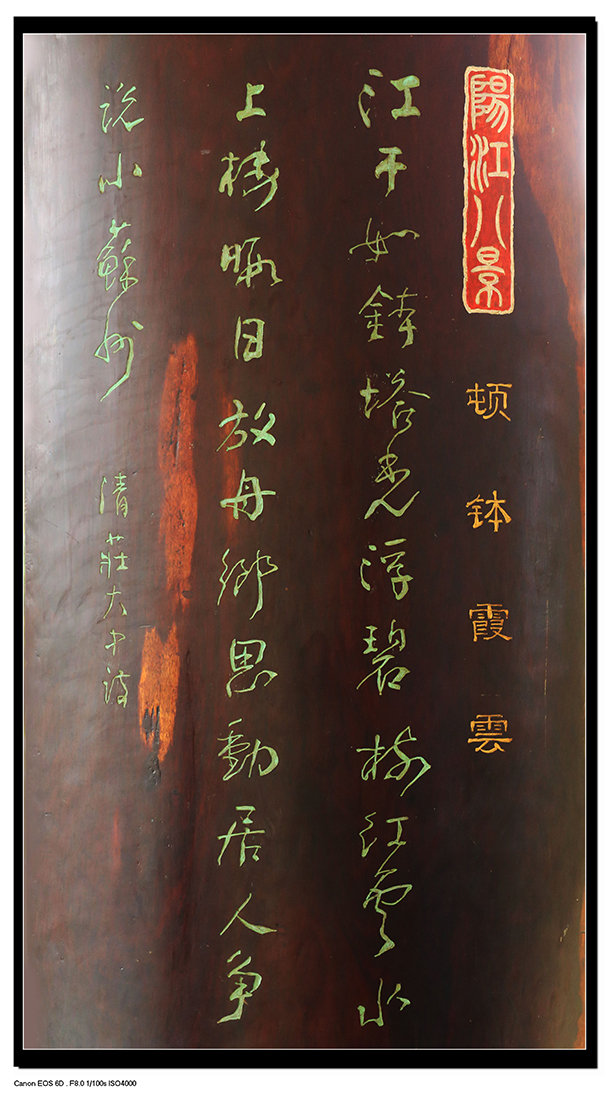 陽江八景
頓钵霞雲
江干如鉢塔光浮碧樹红雲水
上樓暇日放舟鄉思動居人争
说小蘇州 清莊大中詩
Canon EOS 6D . F8.0 1/100s ISO4000